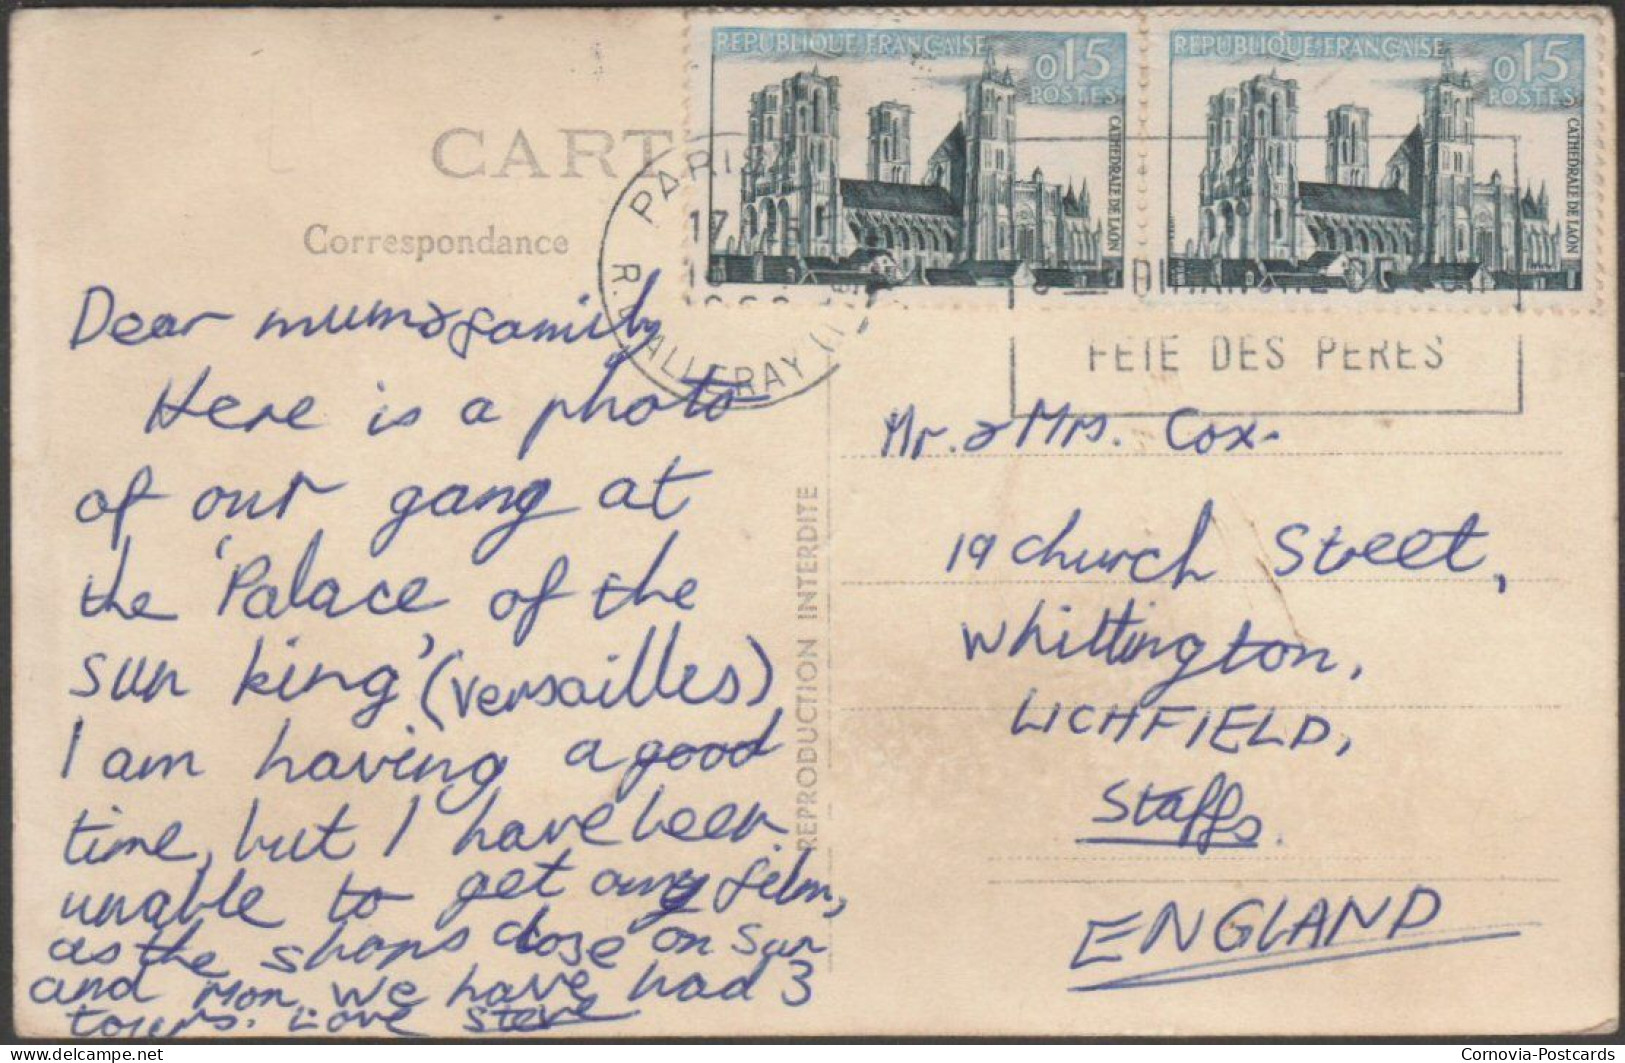 REPUBLIQUE FRANÇAISE
0,15
POSTES
CATHEDRALE DE LAON
REPUBLIQUE FRANÇAISE
0,15
POSTES
CATHEDRALE DE LAON
CART
Correspondance
PARIS
17
FETE DES PERES
Dear mum & family
Here is a photo
of our gang at
the 'Palace of the
sun king' (versailles)
I am having a good
time, but I have been
unable to get any film,
as the shops close on Sun
and Mon. We have had 3
tours. Love Steve
REPRODUCTION INTERDITE
Mr. & Mrs. Cox.
19 church Street,
Whittington,
LICHFIELD,
Staffs.
ENGLAND
Cornovia-Postcards